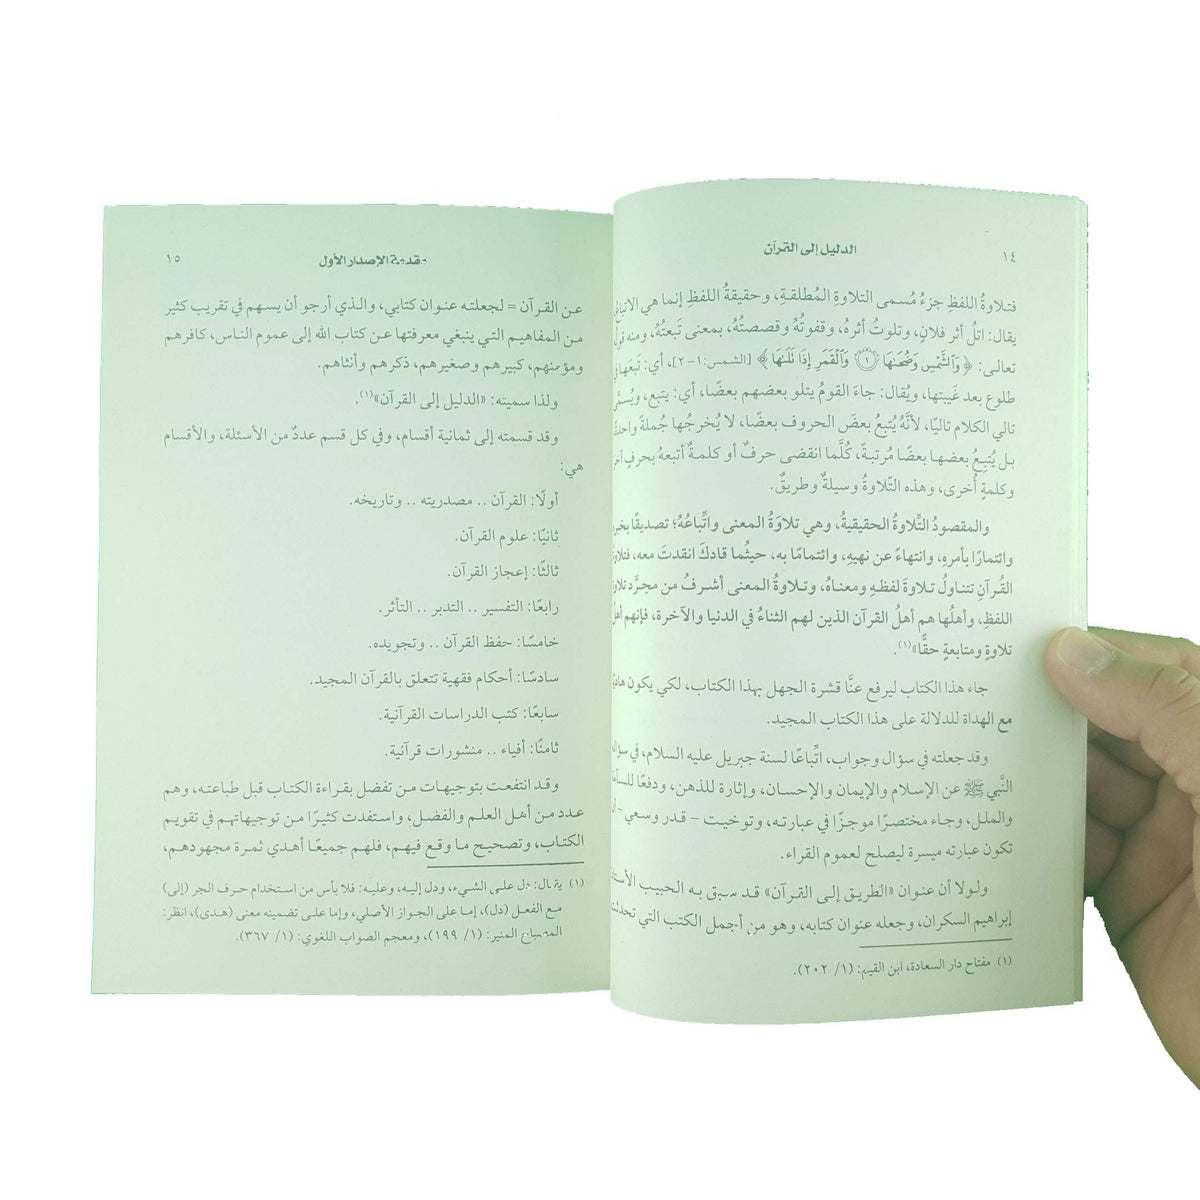 ١٤
الدليل إلى القرآن
فتلاوةُ اللفظِ جزءُ مُسمى التلاوةِ المُطلقةِ، وحقيقةُ اللفظِ إنما هي الاتباعُ
يقال: اتلُ أثر فلانٍ، وتلوتُ أثرهُ، وقفوتُهُ وقصصتُهُ، بمعنى تَبعتُهُ، ومنه قولُ
تعالى: ﴿وَٱلشَّمْسِ وَضُحَىٰهَا ١ وَٱلْقَمَرِ إِذَا تَلَىٰهَا﴾ [الشمس:١-٢]، أي: تَبَعَها في
طلوع بعد غَيبتها، ويُقال: جاءَ القومُ يتلو بعضهم بعضًا، أي: يتبع، ويُسمَّى
تالي الكلام تاليًا، لأنَّهُ يُتبعُ بعضَ الحروف بعضًا، لا يُخرجُها جُملةً واحدةً
بل يُتبِعُ بعضها بعضًا مُرتبةً، كُلَّما انقضى حرفٌ أو كلمةٌ أتبعهُ بحرفٍ آخر
وكلمةٍ أُخرى، وهذه التِّلاوةُ وسيلةٌ وطريقٌ.
والمقصودُ التِّلاوةُ الحقيقيةُ، وهي تلاوَةُ المعنى واتِّباعُهُ؛ تصديقًا بخبره
وائتمارًا بأمرهِ، وانتهاءً عن نهيهِ، وائتمامًا به، حيثُما قادكَ انقدتَ معه، فتلاوة
القُرآنِ تتناولُ تلاوةَ لفظهِ ومعناهُ، وتلاوةُ المعنى أشرفُ من مجرَّد تلاوة
اللفظِ، وأهلُها هم أهلُ القرآن الذين لهم الثناءُ في الدنيا والآخرة، فإنهم أهلُ
تلاوةٍ ومتابعةٍ حقًّا»(١).
جاء هذا الكتاب ليرفع عنَّا قشرة الجهل بهذا الكتاب، لكي يكون هاديًا
مع الهداة للدلالة على هذا الكتاب المجيد.
وقد جعلته في سؤال وجواب، اتِّباعًا لسنة جبريل عليه السلام، في سؤاله
النَّبي ﷺ عن الإسلام والإيمان والإحسان، وإثارة للذهن، ودفعًا للسآمة
والملل، وجاء مختصرًا موجزًا في عبارته، وتوخيت - قدر وسعي -
تكون عبارته ميسرة ليصلح لعموم القراء.
ولولا أن عنوان «الطريق إلى القرآن» قد سبق به الحبيب الأستاذ
إبراهيم السكران، وجعله عنوان كتابه، وهو من أجمل الكتب التي تحدثت
(١) مفتاح دار السعادة، ابن القيم: (١/ ٢٠٢).
مقدمة الإصدار الأول
١٥
عن القرآن = لجعلته عنوان كتابي، والذي أرجو أن يسهم في تقريب كثير
من المفاهيم التي ينبغي معرفتها عن كتاب الله إلى عموم الناس، كافرهم
ومؤمنهم، كبيرهم وصغيرهم، ذكرهم وأنثاهم.
ولذا سميته: «الدليل إلى القرآن»(١).
وقد قسمته إلى ثمانية أقسام، وفي كل قسم عددٌ من الأسئلة، والأقسام
هي:
أولًا: القرآن .. مصدريته .. وتاريخه.
ثانيًا: علوم القرآن.
ثالثًا: إعجاز القرآن.
رابعًا: التفسير .. التدبر .. التأثر.
خامسًا: حفظ القرآن .. وتجويده.
سادسًا: أحكام فقهية تتعلق بالقرآن المجيد.
سابعًا: كتب الدراسات القرآنية.
ثامنًا: أفياء .. منشورات قرآنية.
وقد انتفعت بتوجيهات من تفضل بقراءة الكتاب قبل طباعته، وهم
عدد من أهل العلم والفضل، واستفدت كثيرًا من توجيهاتهم في تقويم
الكتاب، وتصحيح ما وقع فيهم، فلهم جميعًا أهدي ثمرة مجهودهم،
(١) يقال: دل على الشيء، ودل إليه، وعليه: فلا بأس من استخدام حرف الجر (إلى)
مع الفعل (دل)، إما على الجواز الأصلي، وإما على تضمينه معنى (هدى)، انظر:
المصباح المنير: (١/ ١٩٩)، ومعجم الصواب اللغوي: (١/ ٣٦٧).